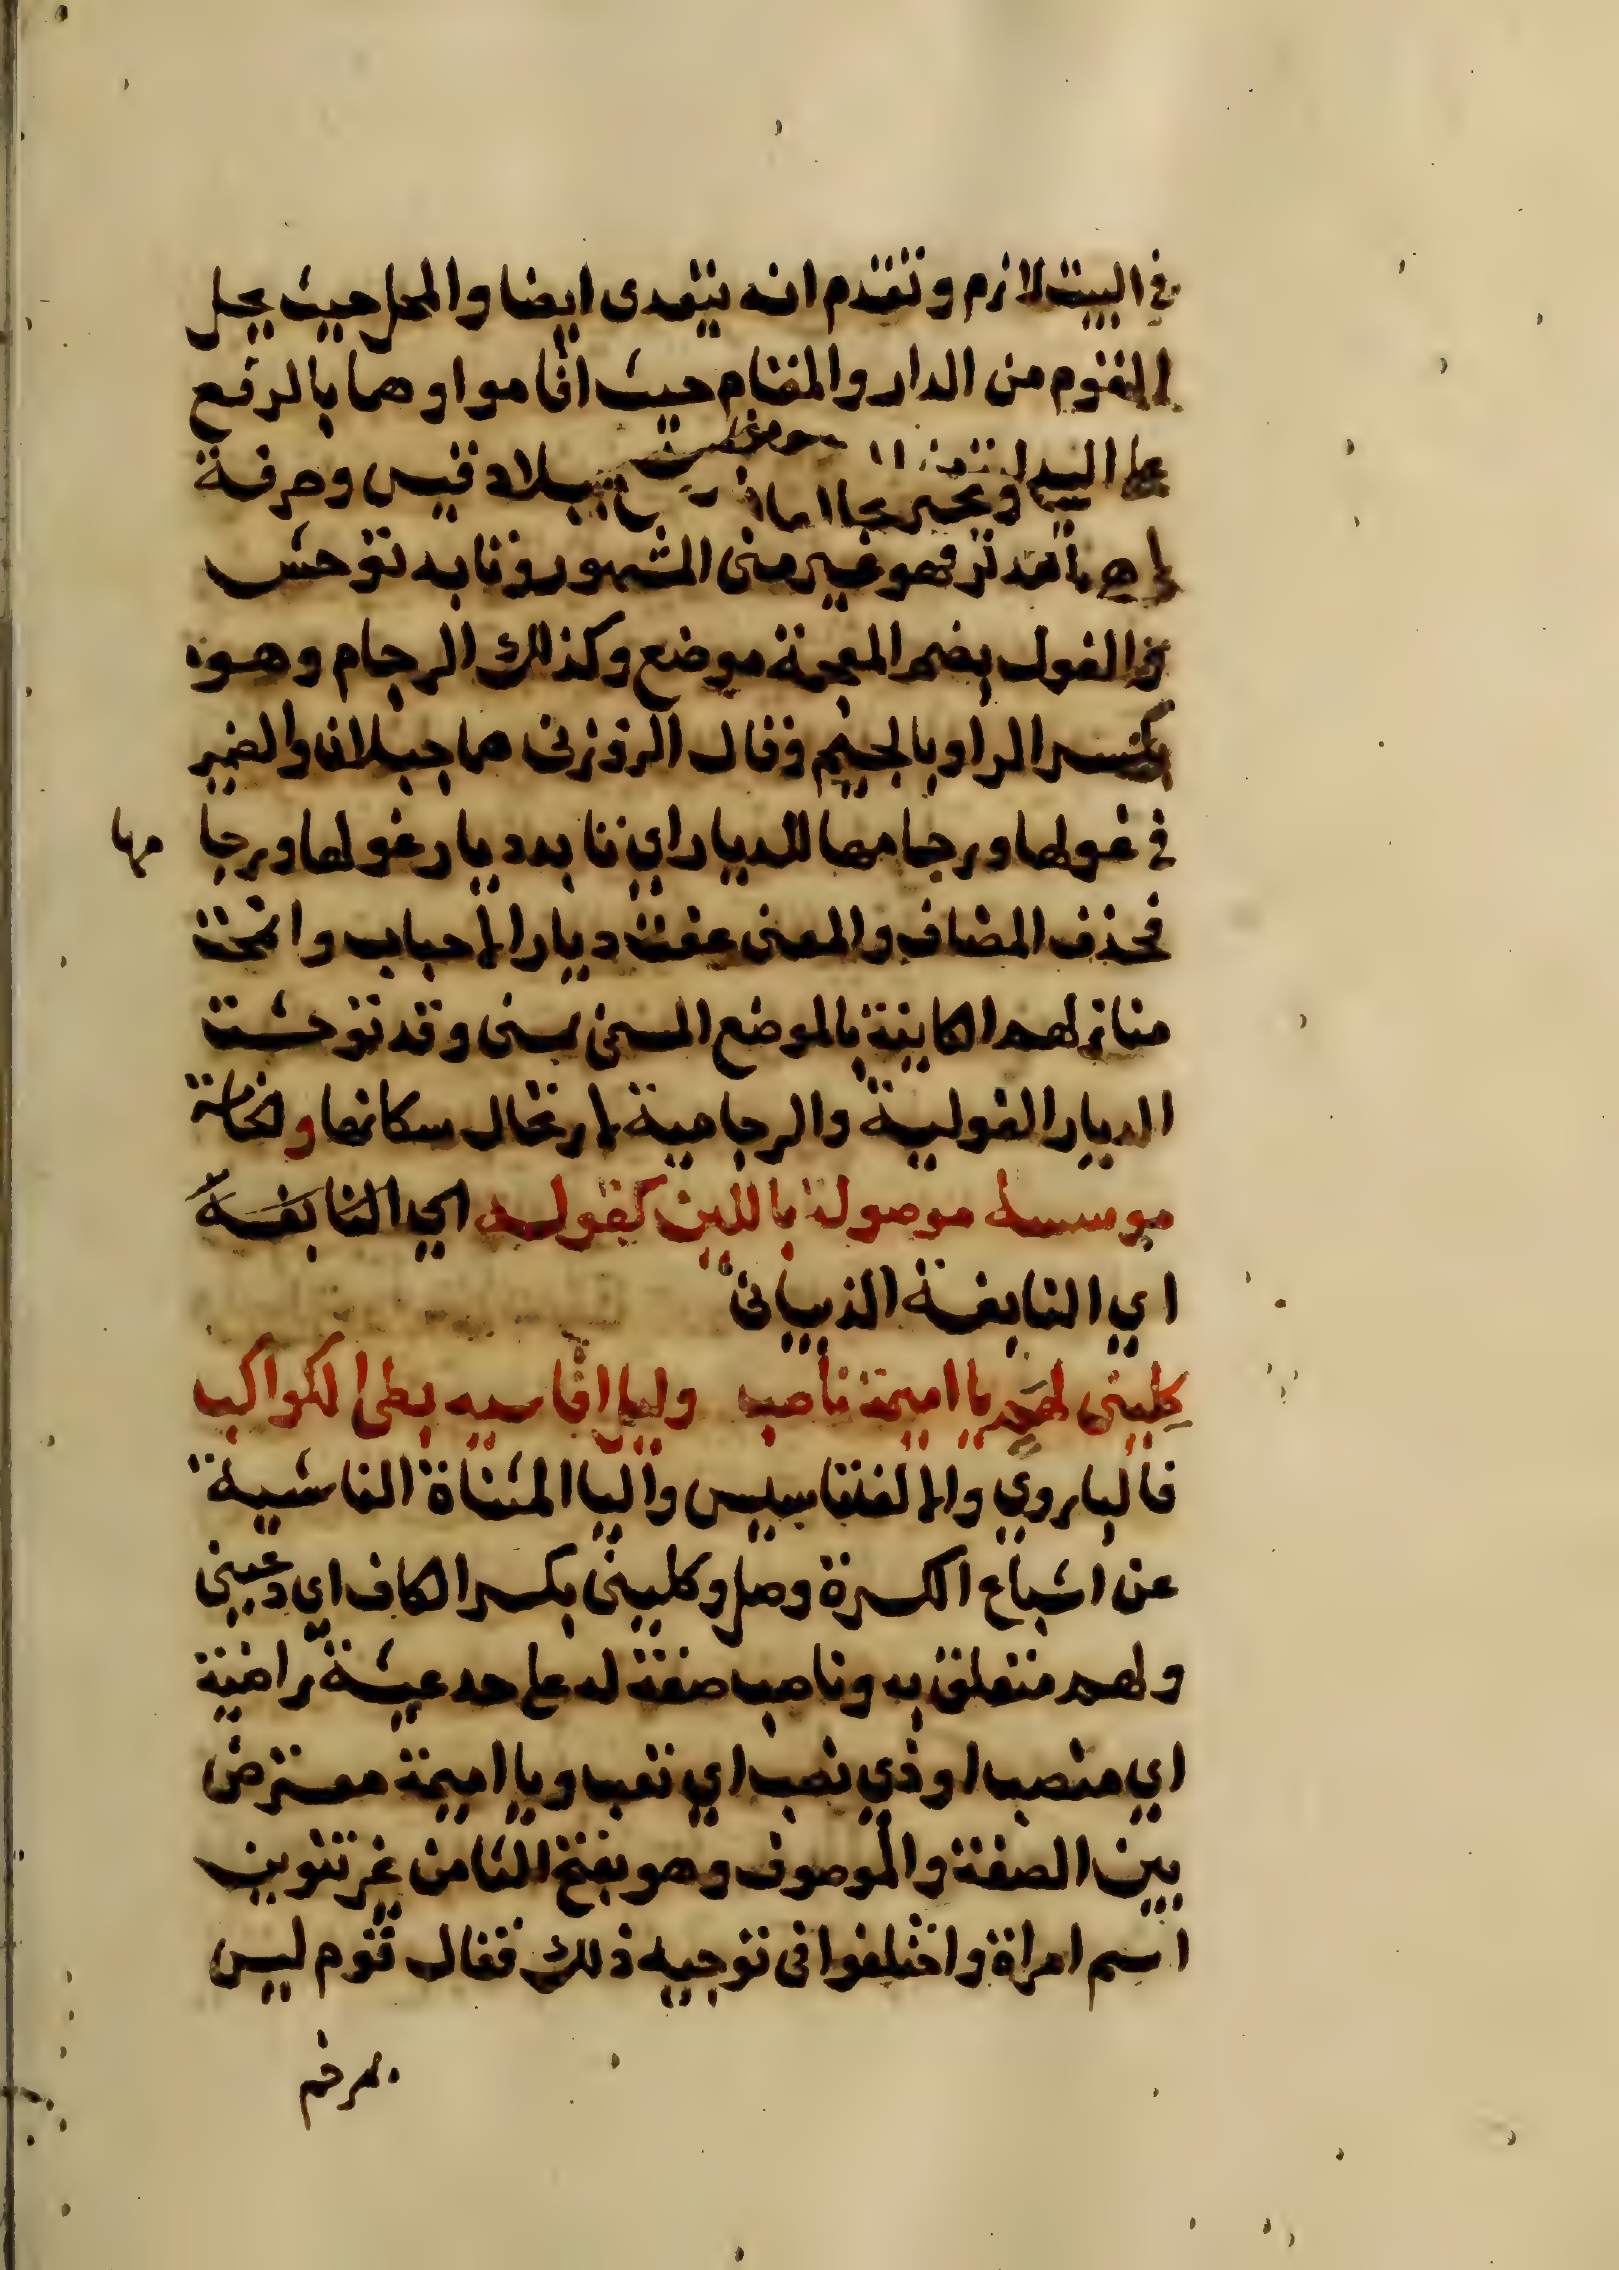 في البيت لازم وتقدم انه يتعدى ايضا والمحل حيث يحل
القوم من الدار والمقام حيث اقاموا وهما بالرفع
على البدل ببلاد قيس وحرفة
فهو غير منى المشهور وتابد توحش
والغول بضم المعجمة موضع وكذلك الرجام وهو
بكسر الراو بالجيم وقال الزوزنى هما جبلان والضمير
في غولها ورجامها للديار اي تابد ديار غولها ورجا مها
فحذف المضاف والمعنى عفت ديار الاحباب وانمحت
منازلهم الكاينة بالموضع المسمى بمنى وقد توحشت
الديار الغولية والرجامية لارتحال سكانها والخامسة
موسسة موصولة باللين كقوله اي النابغة
اي النابغة الذبيانى
كلينى لهم يا اميمة ناصب وليل اقاسيه بطى الكواكب
فالبا روي والالف تاسيس واليا المثناة الناشية
عن اشباع الكسرة وصل وكلينى بكسر الكاف اي دعينى
ولهم متعلق به وناصب صفة له على حد عيشة راضية
اي منصب او ذي نصب اي تعب ويا اميمة معترض
بين الصفة والموصوف وهو بفتح التا من غير تنوين
اسم امراة واختلفوا فى توجيه ذلك فقال قوم ليس
بمرخم